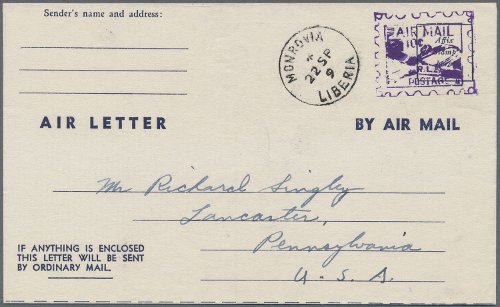 Sender's name and address:
MONROVIA
22 SP
9
LIBERIA
AIR MAIL
10¢
Affix
Stamp
R.L.
POSTAGE
AIR LETTER
BY AIR MAIL
Mr Richard Singley
Lancaster,
Pennsylvania
U. S. A.
IF ANYTHING IS ENCLOSED
THIS LETTER WILL BE SENT
BY ORDINARY MAIL.